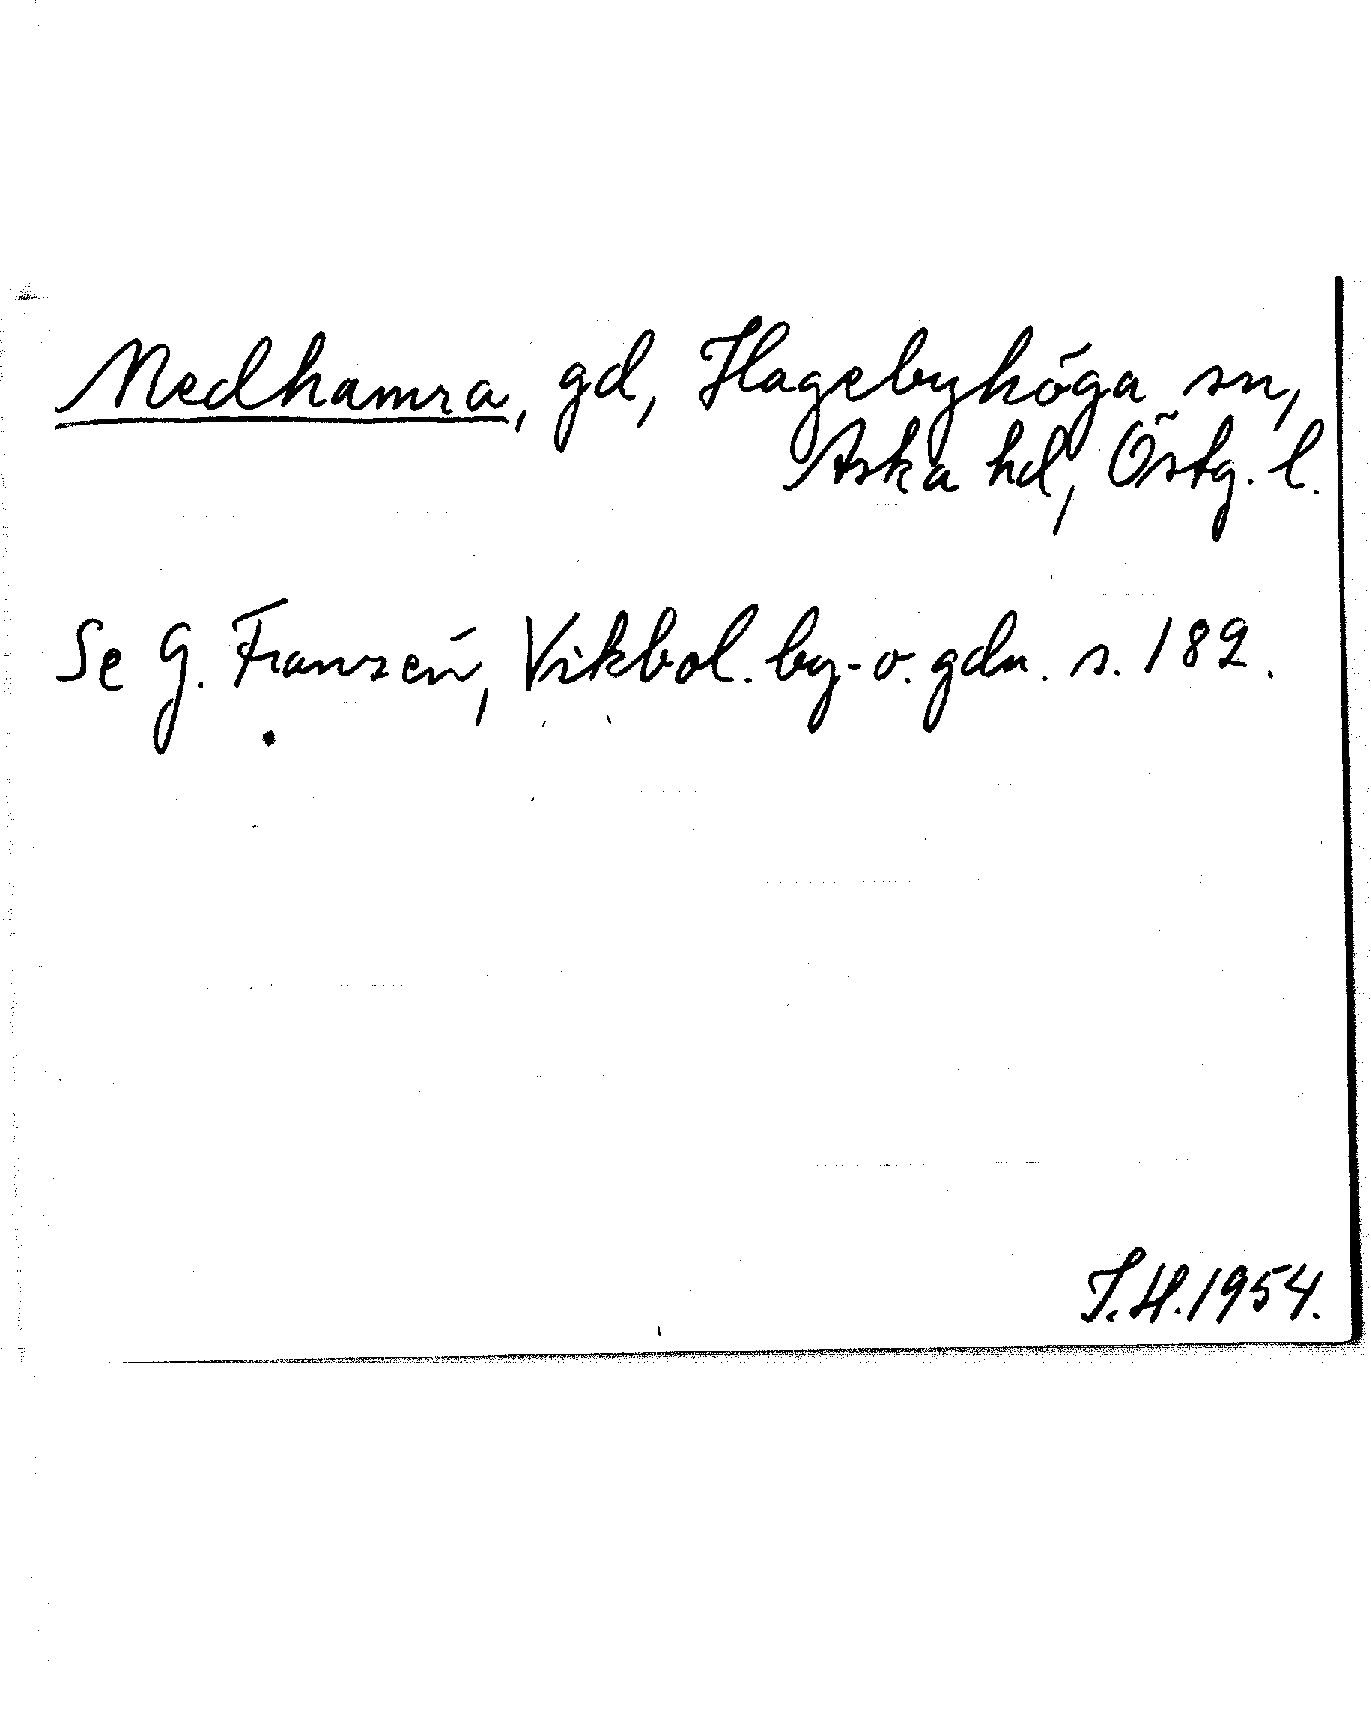 Medhamra, gd, Hagebyhöga sn,
Aska hd, Östg. l.
Se G. Franzén, Vikbol. by- o. gdn. s. 182.
I.H. 1954.